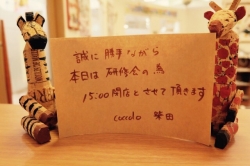 誠に勝手ながら
本日は研修会の為
15:00閉店とさせて頂きます
Coccolo 柴田